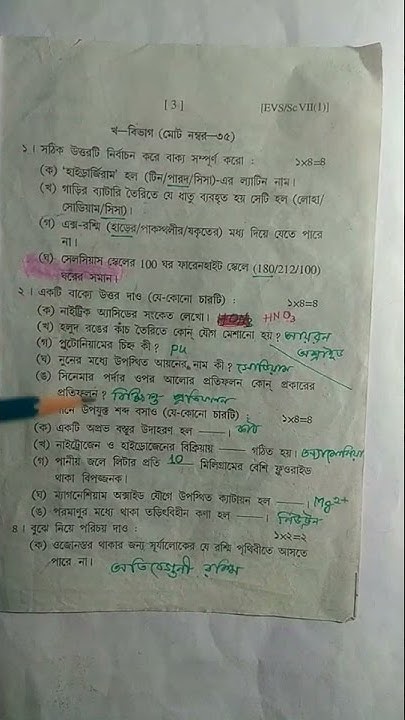 [ 3 ] [EVS/Sc VII(1)]
খ—বিভাগ (মোট নম্বর—৩৫)
১। সঠিক উত্তরটি নির্বাচন করে বাক্য সম্পূর্ণ করো : ১×৪=৪
(ক) ‘হাইড্রার্জিরাম’ হল (টিন/পারদ/সিসা)-এর ল্যাটিন নাম।
(খ) গাড়ির ব্যাটারি তৈরিতে যে ধাতু ব্যবহৃত হয় সেটি হল (লোহা/
সোডিয়াম/সিসা)।
(গ) এক্স-রশ্মি (হাড়ের/পাকস্থলীর/যকৃতের) মধ্য দিয়ে যেতে পারে
না।
(ঘ) সেলসিয়াস স্কেলের 100 ঘর ফারেনহাইট স্কেলে (180/212/100)
ঘরের সমান।
২। একটি বাক্যে উত্তর দাও (যে-কোনো চারটি) : ১×৪=৪
(ক) নাইট্রিক অ্যাসিডের সংকেত লেখো। HNO3
(খ) হলুদ রঙের কাঁচ তৈরিতে কোন্ যৌগ মেশানো হয়? আয়রন
অক্সাইড
(গ) প্লুটোনিয়ামের চিহ্ন কী? Pu
(ঘ) নুনের মধ্যে উপস্থিত আয়নের নাম কী? সোডিয়াম
(ঙ) সিনেমার পর্দার ওপর আলোর প্রতিফলন কোন্ প্রকারের
প্রতিফলন? বিক্ষিপ্ত প্রতিফলন
উপযুক্ত শব্দ বসাও (যে-কোনো চারটি) : ১×৪=৪
(ক) একটি অপ্রভ বস্তুর উদাহরণ হল ——।
(খ) নাইট্রোজেন ও হাইড্রোজেনের বিক্রিয়ায় —— গঠিত হয়। অ্যামোনিয়া
(গ) পানীয় জলে লিটার প্রতি 10 মিলিগ্রামের বেশি ফ্লুওরাইড
থাকা বিপজ্জনক।
(ঘ) ম্যাগনেশিয়াম অক্সাইড যৌগে উপস্থিত ক্যাটায়ন হল ——। Mg2+
(ঙ) পরমাণুর মধ্যে থাকা তড়িৎবিহীন কণা হল ——। নিউট্রন
৪। বুঝে নিয়ে পরিচয় দাও : ১×২=২
(ক) ওজোনস্তর থাকার জন্য সূর্যালোকের যে রশ্মি পৃথিবীতে আসতে
পারে না। অতিবেগুনী রশ্মি